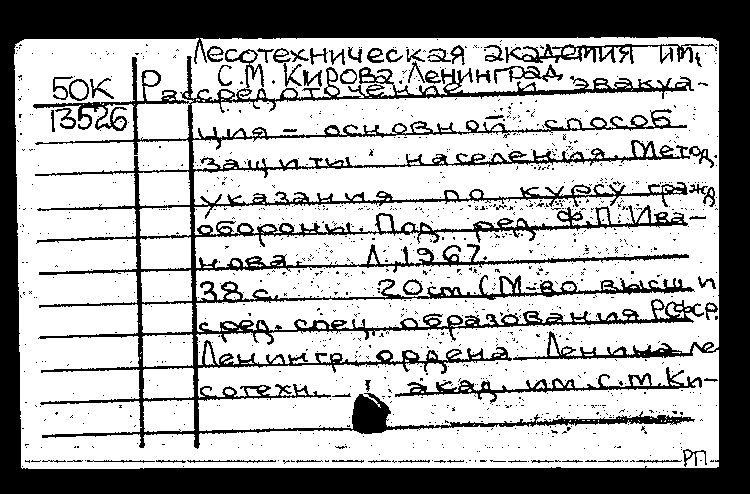 Лесотехническая академия им.
С.М.Кирова.Ленинград.
50К Рассредоточение и эвакуа-
13526 ция - основной способ
защиты населения. Метод.
указания по курсу гражд
обороны. Под ред. Ф.П.Ива-
нова. Л.,1967.
38 с. 20 см. (М-во высш и
сред. спец. образования РСФСР.
Ленингр. ордена Ленина ле
сотехн. акад. им. С.М.Ки-
РП